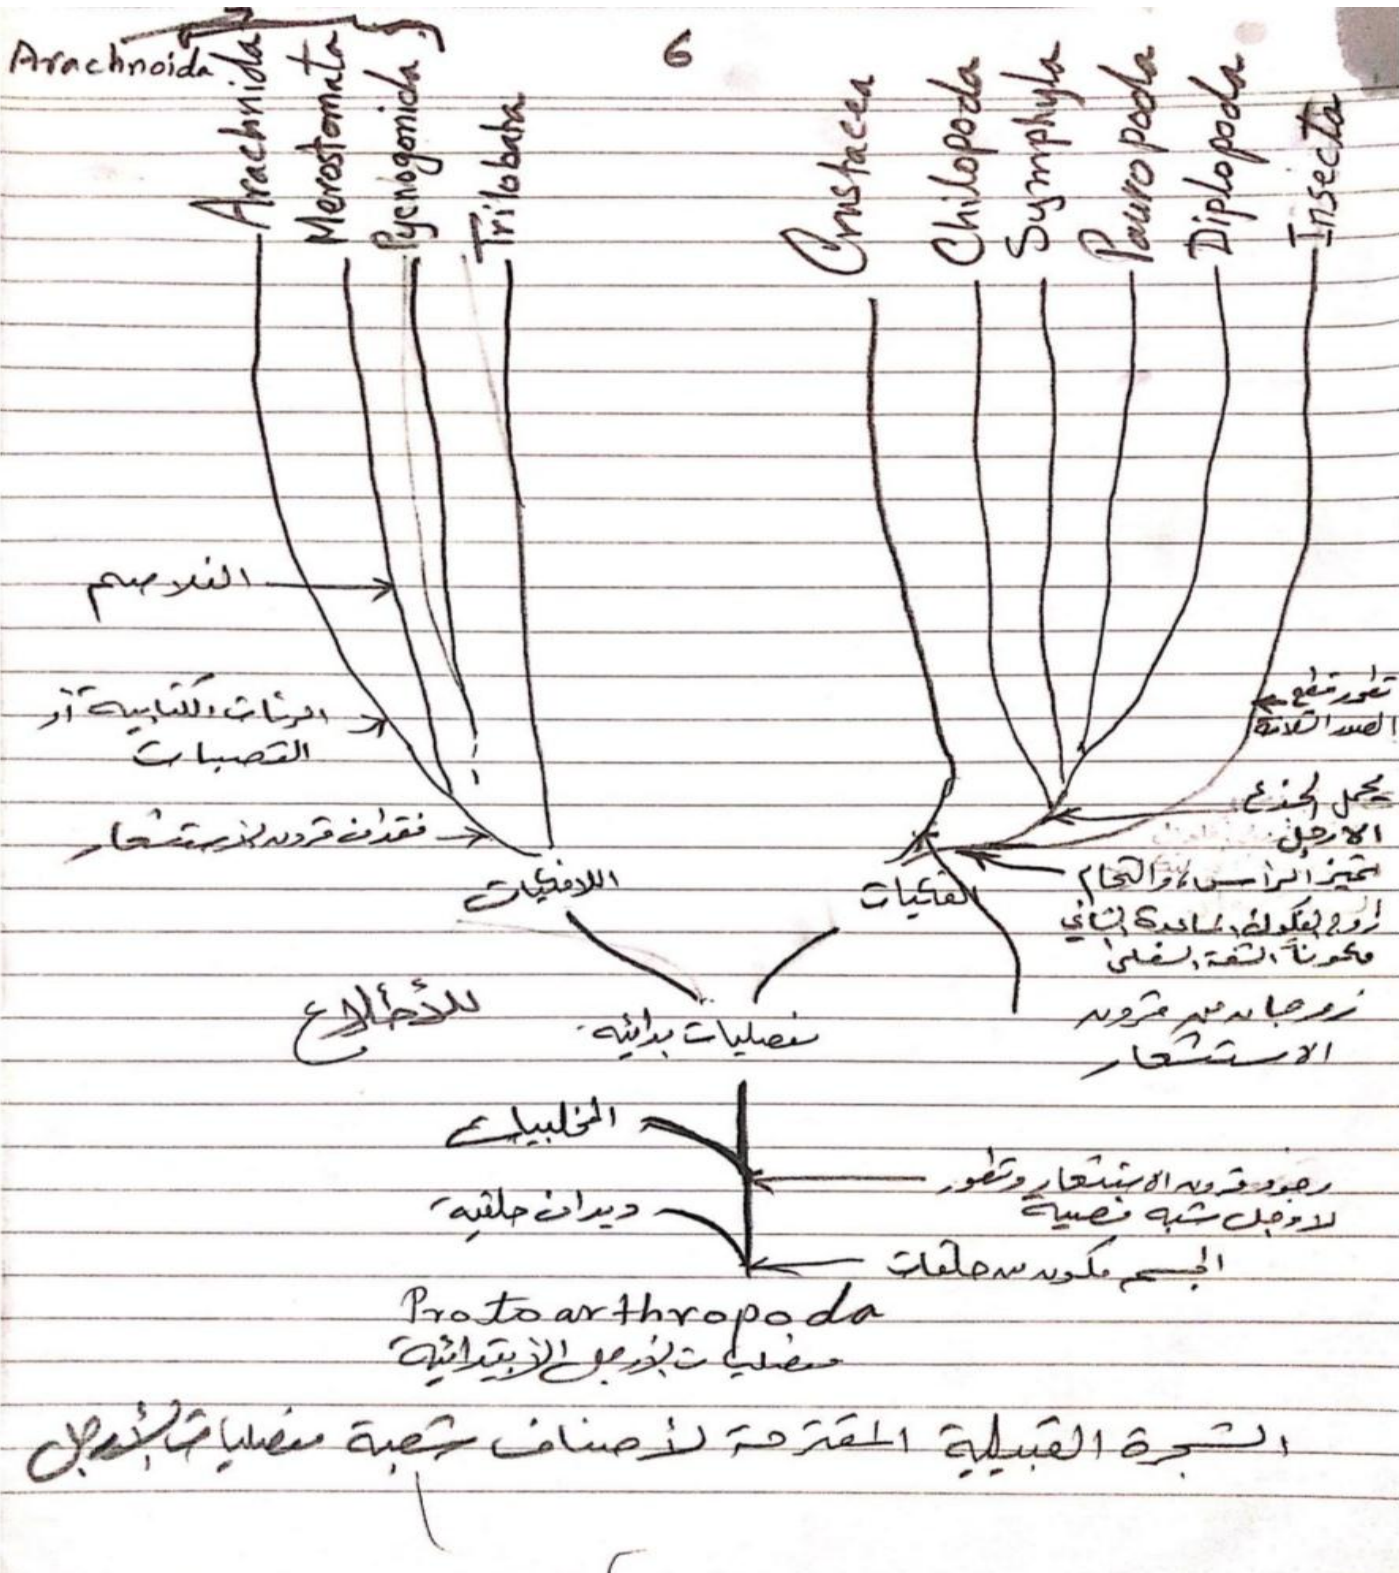 6
Arachnoida
Arachnida
Merostomata
Pycnogonida
Trilobata
Crustacea
Chilopoda
Symphyla
Pauropoda
Diplopoda
Insecta
الغلاصم
الرئات الكتابية أو
القصبات
فقدان قرون الاستشعار
تطور قطع
الصدر الثلاثة
يحمل الجذع
الارجل
تميز الرأس والتحام
زوج الفكوك المساعدة الثاني
مكوناً الشفة السفلى
اللافكيات
الفكيات
زوجان من قرون
الاستشعار
للأطلاع
مفصليات بدائية
المخلبيات
وجود قرون الاستشعار وتطور
لارجل شبه مفصلية
ديدان حلقية
الجسم مكون من حلقات
Protoarthropoda
مفصليات الأرجل الأبتدائية
الشجرة القبيلية المقترحة لأصناف شعبة مفصليات الأرجل